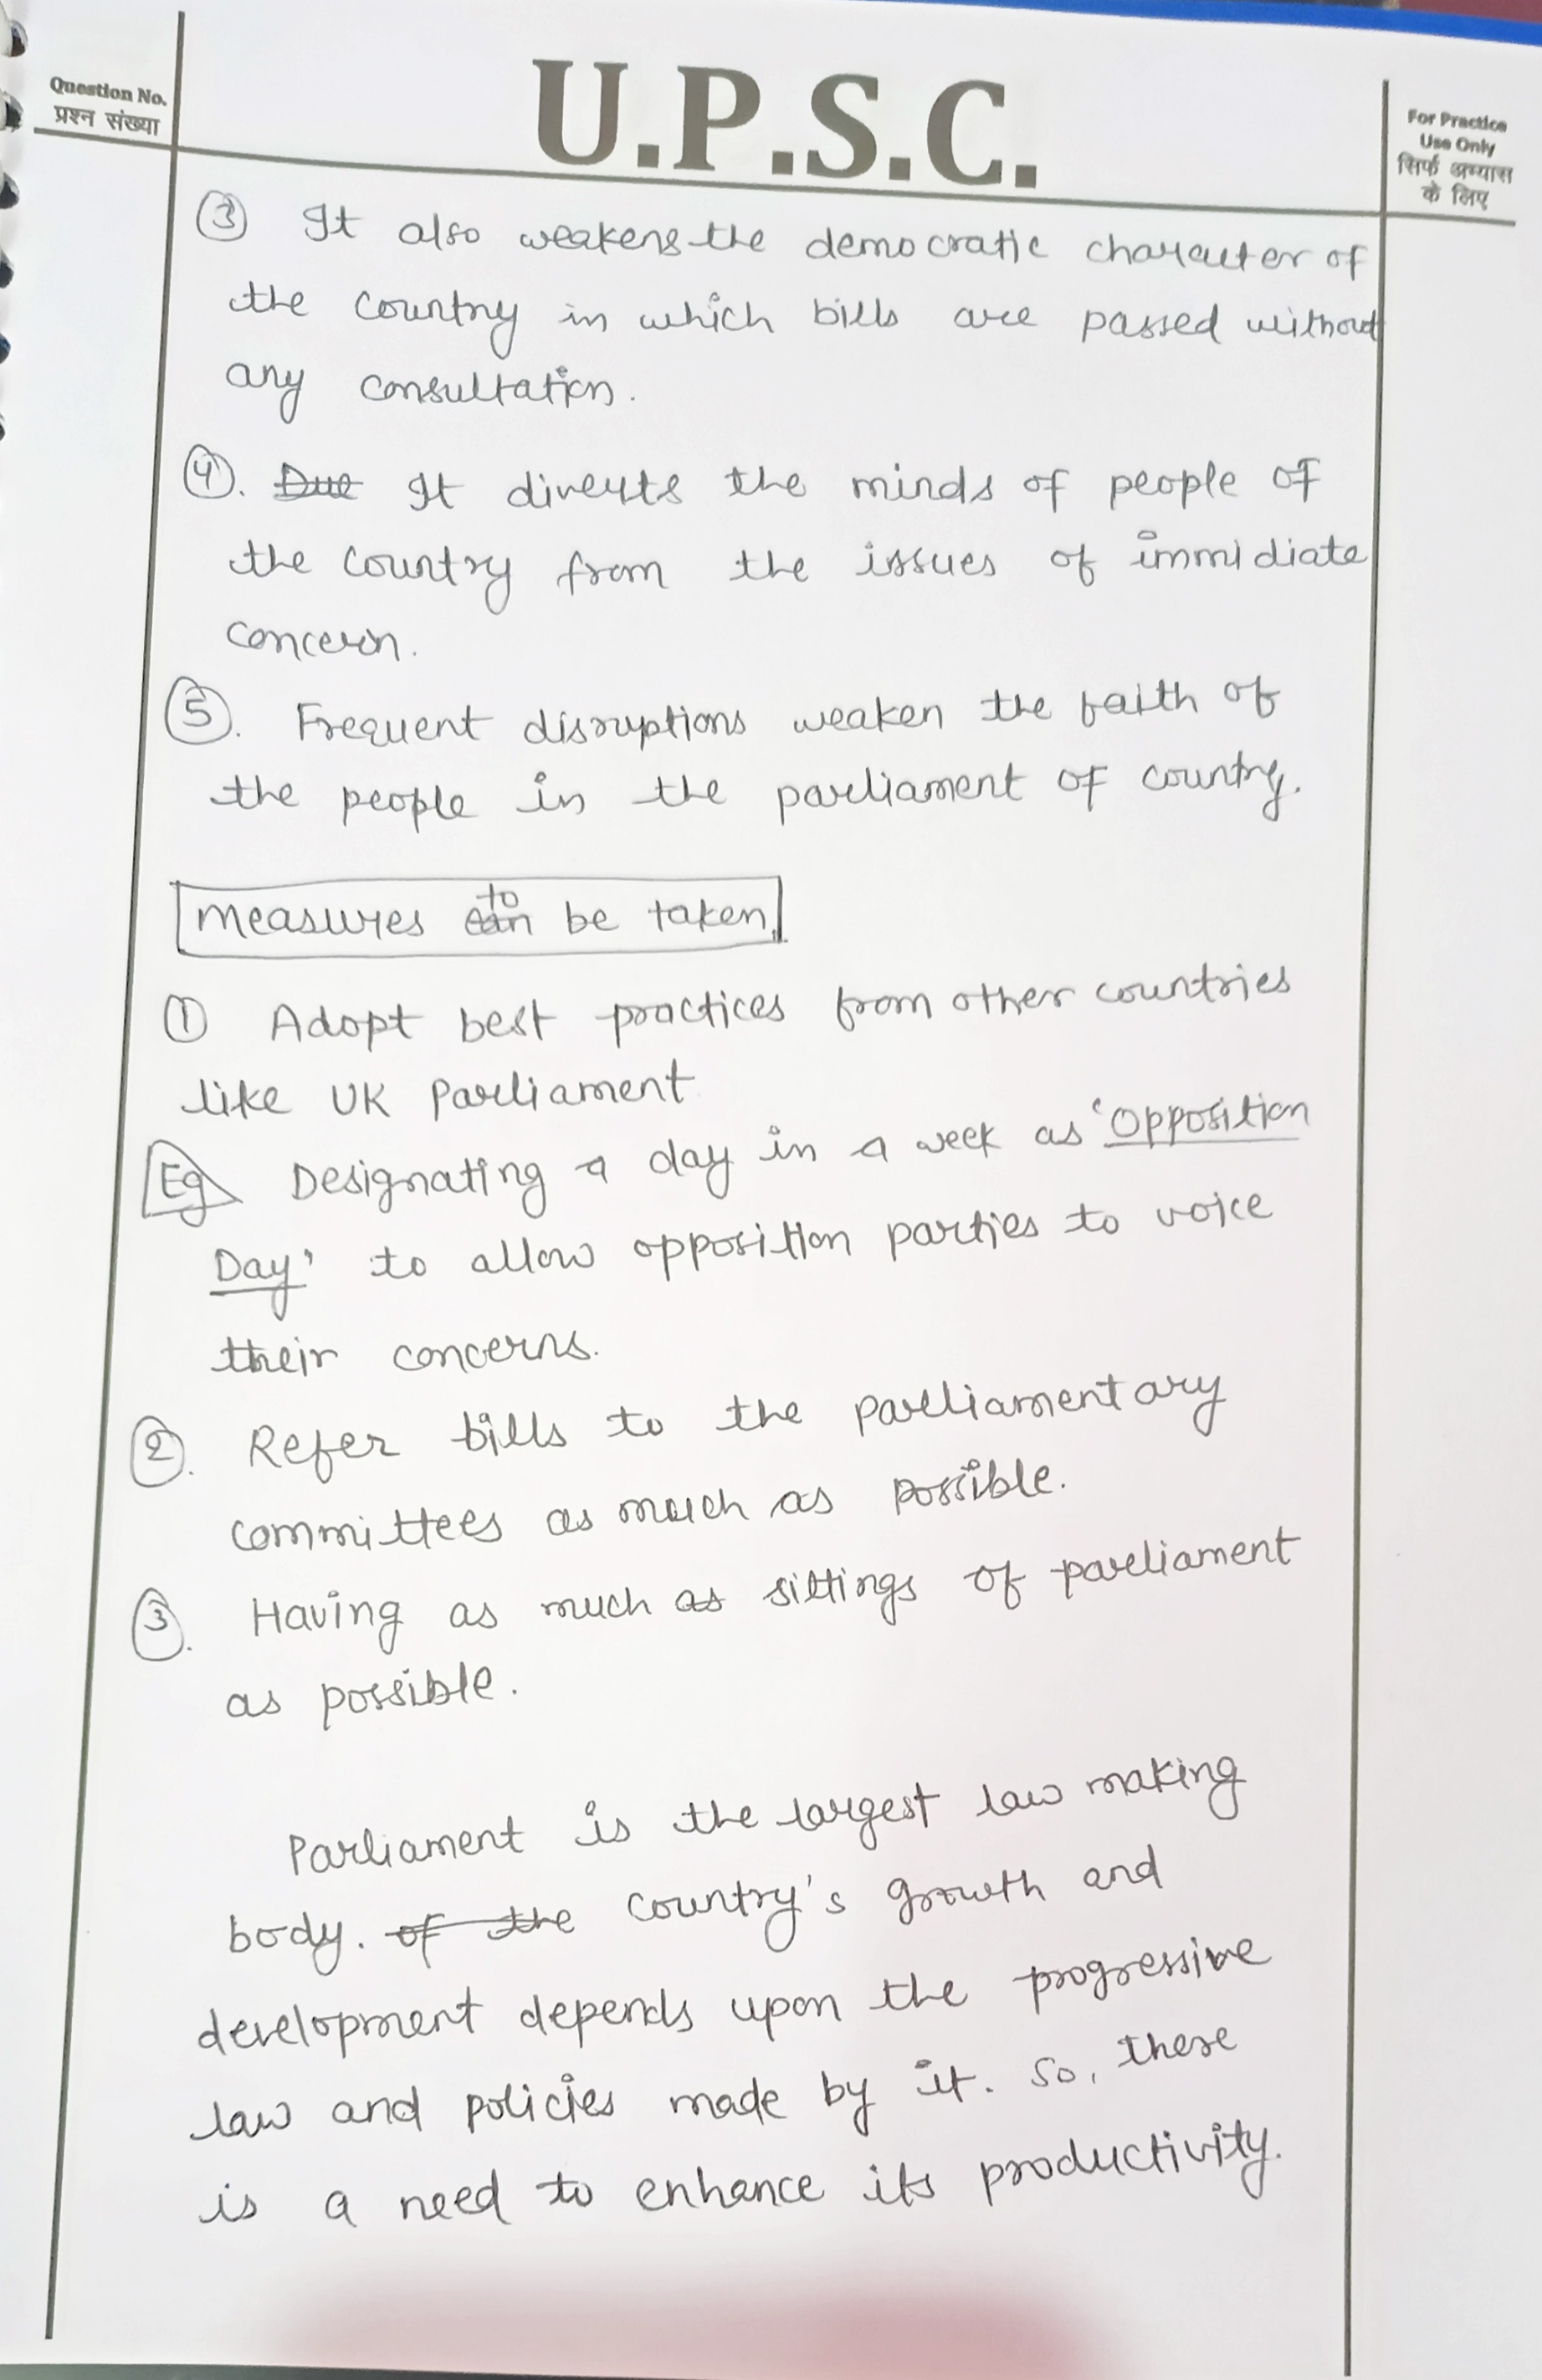 Question No.
प्रश्न संख्या
U.P.S.C.
For Practice
Use Only
सिर्फ अभ्यास
के लिए
③ It also weakens the democratic character of
the country in which bills are passed without
any consultation.
④. Due It diverts the minds of people of
the country from the issues of immidiate
concern.
⑤. Frequent disruptions weaken the faith of
the people in the parliament of country.
measures can to be taken.
① Adopt best practices from other countries
like UK Parliament
Eg Designating a day in a week as 'Opposition
Day' to allow opposition parties to voice
their concerns.
②. Refer bills to the parliamentary
committees as much as possible.
③. Having as much as sittings of parliament
as possible.
Parliament is the largest law making
body. of the country's growth and
development depends upon the progressive
law and policies made by it. So, there
is a need to enhance its productivity.